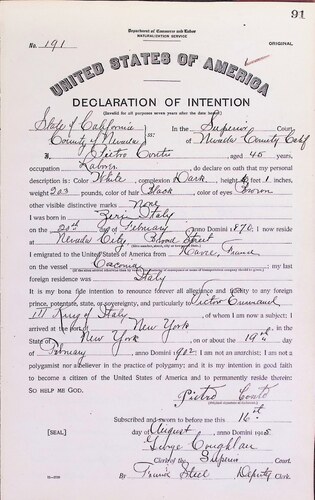 91
Department of Commerce and Labor
NATURALIZATION SERVICE
No. 191
ORIGINAL
UNITED STATES OF AMERICA
DECLARATION OF INTENTION
(Invalid for all purposes seven years after the date hereof)
State of California
County of Nevada ss:
In the Superior Court
of Nevada County Calf
I, Pietro Conti aged 45 years,
occupation Laborer, do declare on oath that my personal
description is: Color White, complexion Dark, height feet inches,
weight 203 pounds, color of hair Black, color of eyes Brown
other visible distinctive marks None
I was born in Italy
on the 20th day of February, anno Domini 1870; I now reside
at Nevada City, Broad Street
I emigrated to the United States of America from Havre, France
on the vessel; my last
foreign residence was Italy
It is my bona fide intention to renounce forever all allegiance and fidelity to any foreign
prince, potentate, state, or sovereignty, and particularly to Victor Emmanuel
III King of Italy, of whom I am now a subject; I
arrived at the port of New York, in the
State of New York, on or about the 19th day
of February, anno Domini 1902; I am not an anarchist; I am not a
polygamist nor a believer in the practice of polygamy; and it is my intention in good faith
to become a citizen of the United States of America and to permanently reside therein:
SO HELP ME GOD.
Pietro Conti
Subscribed and sworn to before me this 16th
[SEAL] day of August, anno Domini 1915
George Coughlan
Clerk of the Superior Court.
By Deputy Clerk.